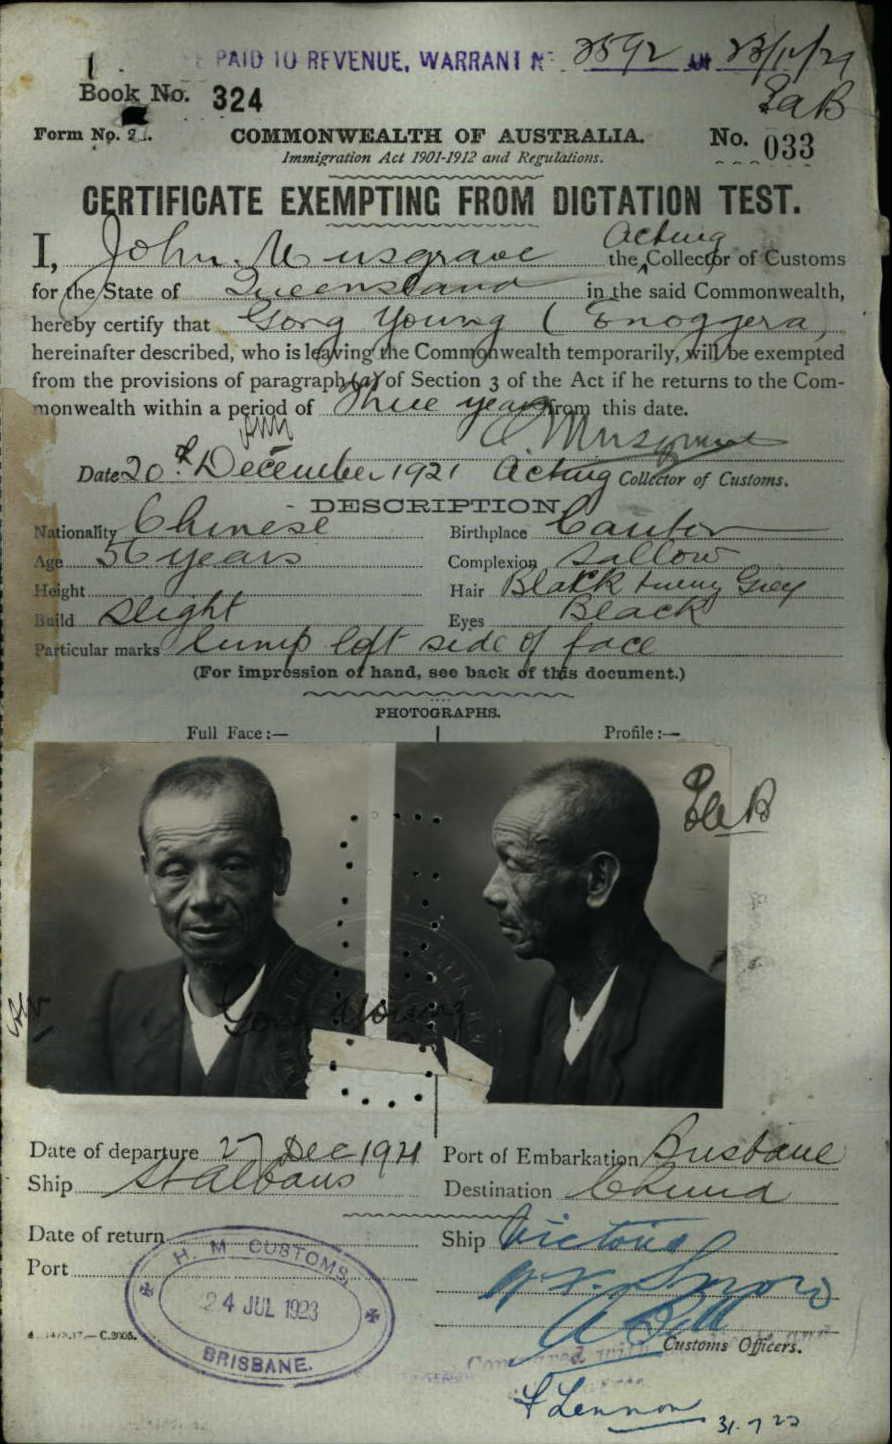 PAID TO REVENUE, WARRANT No 3592 23/12/21
Book No. 324
Form No. 21.
COMMONWEALTH OF AUSTRALIA.
No. 033
Immigration Act 1901-1912 and Regulations.
CERTIFICATE EXEMPTING FROM DICTATION TEST.
I, John Musgrave the Acting Collector of Customs
for the State of Queensland in the said Commonwealth,
hereby certify that Gong Young (Enoggera)
hereinafter described, who is leaving the Commonwealth temporarily, will be exempted
from the provisions of paragraph (a) of Section 3 of the Act if he returns to the Com-
monwealth within a period of three years from this date.
J Musgrave
Date 20th December 1921 Acting Collector of Customs.
DESCRIPTION.
Nationality Chinese Birthplace Canton
Age 56 years Complexion Sallow
Height Hair Black turning Grey
Build Slight Eyes Black
Particular marks lump left side of face
(For impression of hand, see back of this document.)
PHOTOGRAPHS.
Full Face:— Profile:—
Gong Young
Date of departure 27 Dec 1921 Port of Embarkation Brisbane
Ship St Albans Destination China
Date of return Ship Victoria
Port
H. M CUSTOMS,
24 JUL 1923
BRISBANE.
A Bell
C.3005.
Customs Officers.
Compared with
F Lennon 31.7.23